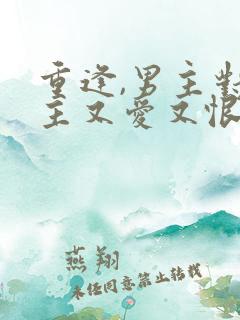 重逢,男主對
主又愛又恨
燕翔
未经同意禁止转载